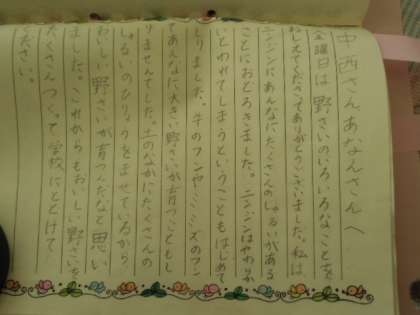 中西さん、あなんさんへ
金曜日は野さいのいろいろなことを
おしえてくださってありがとうございました。私は
ニンジンにあんなにたくさんのしゅるいがある
ことにおどろきました。ニンジンはやわ
いとわれてしまうということもはじめて
しりました。牛のフンやミミズのフン
であんなに大きい野さいが育つこともし
りませんでした。土のなかにたくさんの
しゅるいのひりょうをませているから
おいしい野さいが育つんだなと思い
ました。これからもおいしい野さいを
たくさんつくって学校にとどけて
ください。